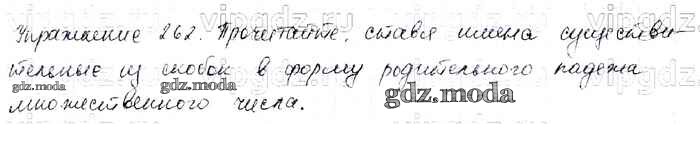 Упражнение 262. Прочитайте, ставя имена существи-
тельные из скобок в форму родительного падежа
множественного числа.
gdz.moda
gdz.moda
gdz.moda
vipgdz.ru